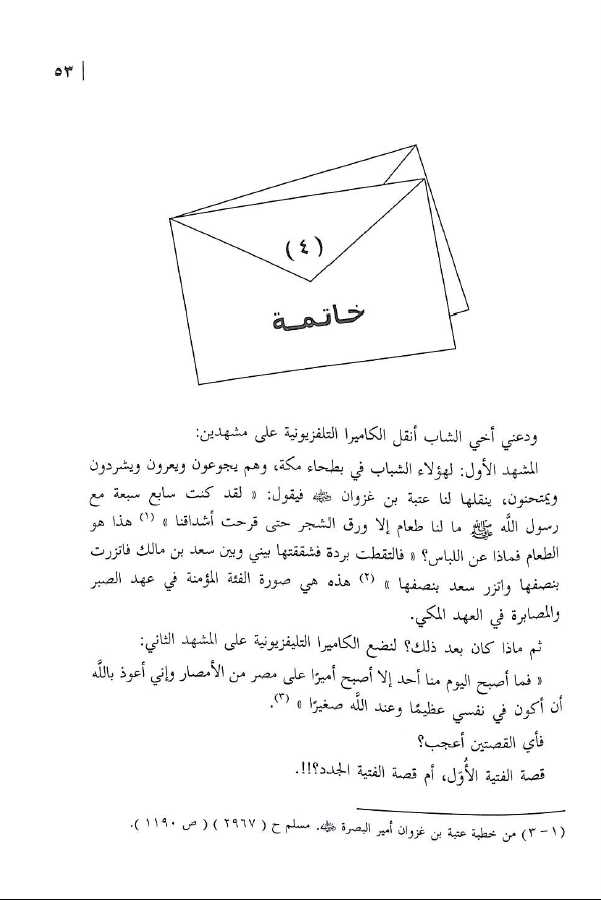 ٥٣
(٤)
خاتمة
ودعني أخي الشاب أنقل الكاميرا التلفزيونية على مشهدين:
المشهد الأول: لهؤلاء الشباب في بطحاء مكة، وهم يجوعون ويعرون ويشردون
ويمتحنون، ينقلها لنا عتبة بن غزوان رضي الله عنه فيقول: « لقد كنت سابع سبعة مع
رسول اللَّه ﷺ ما لنا طعام إلا ورق الشجر حتى قرحت أشداقنا » (١) هذا هو
الطعام فماذا عن اللباس؟ « فالتقطت بردة فشققتها بيني وبين سعد بن مالك فاتزرت
بنصفها واتزر سعد بنصفها » (٢) هذه هي صورة الفئة المؤمنة في عهد الصبر
والمصابرة في العهد المكي.
ثم ماذا كان بعد ذلك؟ لنضع الكاميرا التليفزيونية على المشهد الثاني:
« فما أصبح اليوم منا أحد إلا أصبح أميرًا على مصر من الأمصار وإني أعوذ باللَّه
أن أكون في نفسي عظيمًا وعند اللَّه صغيرًا » (٣).
فأي القصتين أعجب؟
قصة الفتية الأُوَل، أم قصة الفتية الجدد؟!!.
(١ - ٣) من خطبة عتبة بن غزوان أمير البصرة رضي الله عنه. مسلم ح ( ٢٩٦٧ ) ( ص ١١٩٠ ).